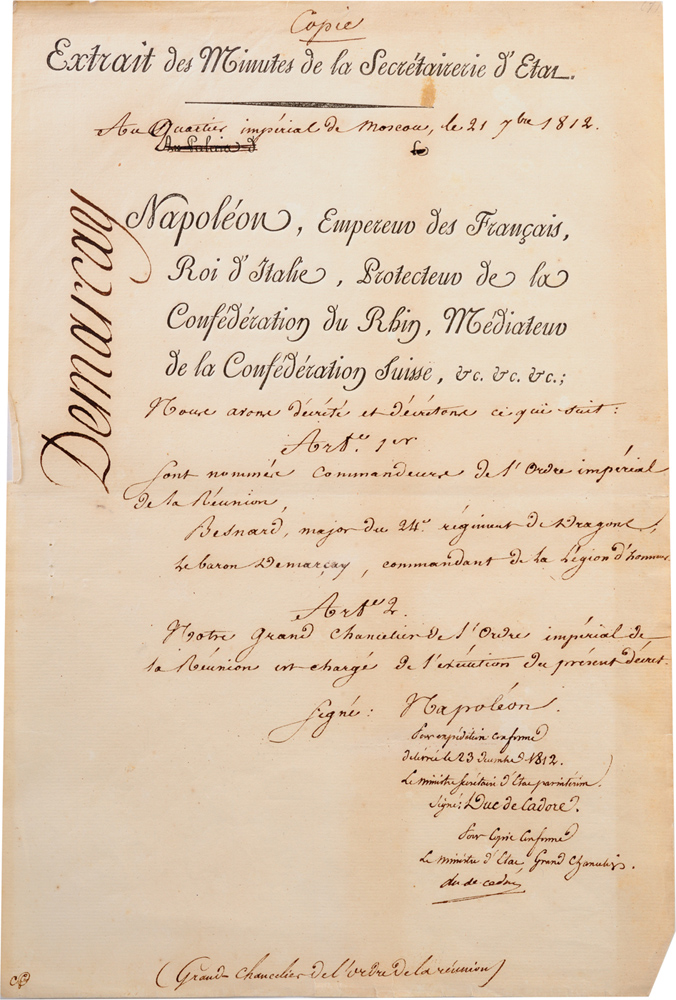 Copie
Extrait des Minutes de la Secrétairerie d'Etat.
Au Quartier impérial de Moscou, le 21 7bre 1812.
Au Palais d
le
Demarçay
Napoléon, Empereur des Français,
Roi d'Italie, Protecteur de la
Confédération du Rhin, Médiateur
de la Confédération Suisse, &c. &c. &c.;
Nous avons décrété et décrétons ce qui suit:
Art.e 1er
Sont nommés commandeurs de l'Ordre impérial
de la Réunion,
Besnard, major du 24e régiment de Dragons,
Le baron Demarçay, commandant de la Légion d'honneur
Art.e 2.
Notre Grand Chancelier de l'Ordre impérial de
la Réunion est chargé de l'exécution du présent décret.
Signé: Napoléon.
Pour expédition conforme
délivré le 23 décembre 1812.
Le ministre secrétaire d'Etat par intérim.
Signé: Duc de Cadore.
Pour Copie Conforme
Le ministre d'Etat, Grand Chancelier.
duc de cadore
(Grand Chancelier de l'ordre de la réunion)